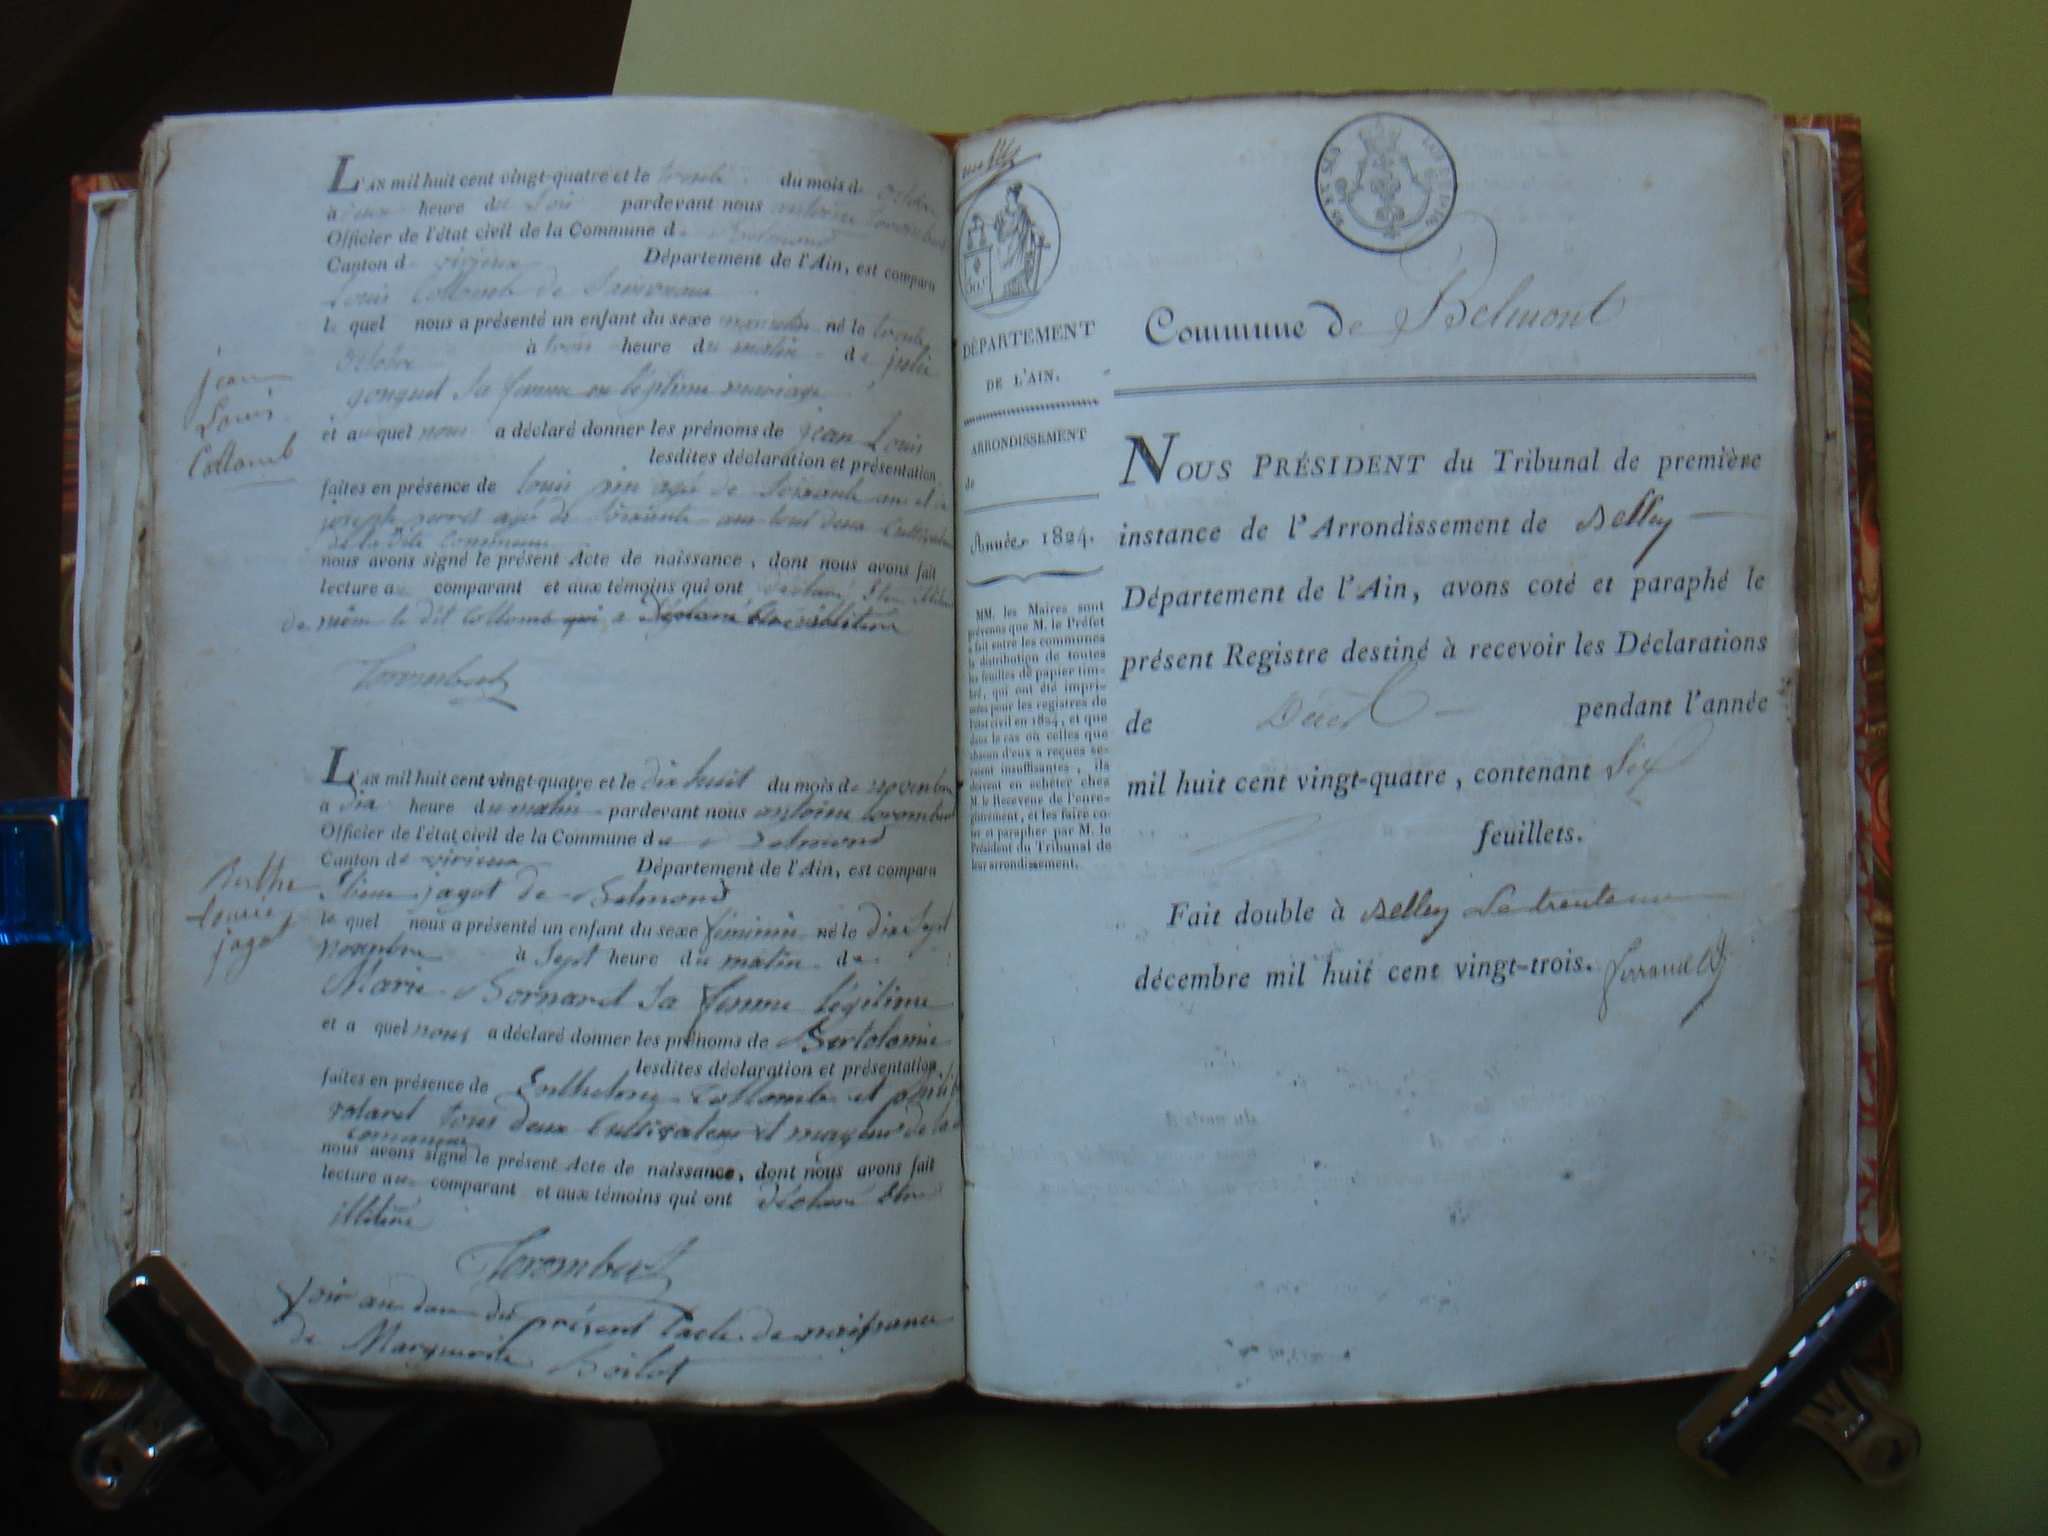 L'AN mil huit cent vingt-quatre et le trente du mois de octobre
à deux heure du soir pardevant nous antoine torombert
Officier de l'état civil de la Commune de Belmond
Canton de virieux Département de l'Ain, est comparu
Louis Collomb de
le quel nous a présenté un enfant du sexe masculin né le trente
octobre à trois heure du matin de julie
gonguet sa femme en légitime mariage
jean
Louis
Collomb
et au quel nous a déclaré donner les prénoms de jean Louis
lesdites déclaration et présentation
faites en présence de louis agé de soixante ans et de
joseph agé de soixante ans tout deux cultivateur
de la dite commune
nous avons signé le présent Acte de naissance, dont nous avons fait
lecture au comparant et aux témoins qui ont
de même le dit Collomb qui a déclaré être illitéré
Torombert
L'AN mil huit cent vingt-quatre et le dix huit du mois de novembre
à dix heure du matin pardevant nous antoine torombert
Officier de l'état civil de la Commune de Belmond
Canton de virieux Département de l'Ain, est comparu
jagot de Belmond
Berthe
Louise
jagot
le quel nous a présenté un enfant du sexe féminin né le dix sept
novembre à sept heure du matin de
Marie Bornard sa femme légitime
et a quel nous a déclaré donner les prénoms de Bertolomie
lesdites déclaration et présentation
faites en présence de Collomb et
tous deux cultivateur et majeur de la
commune
nous avons signé le présent Acte de naissance, dont nous avons fait
lecture au comparant et aux témoins qui ont déclaré être
illitéré
Torombert
voir au dos du présent l'acte de naissance
de Marguerite Boilot
DÉPARTEMENT
DE L'AIN.
ARRONDISSEMENT
de
Année 1824.
MM. les Maires sont
prévenus que M. le Préfet
a fait entre les communes
la distribution de toutes
les feuilles de papier tim-
bré, qui ont été impri-
mées pour les registres de
l'état civil en 1824, et que
dans le cas où celles que
chacun d'eux a reçues se-
roient insuffisantes, ils
doivent en acheter chez
M. le Receveur de l'enre-
gistrement, et les faire co-
ter et parapher par M. le
Président du Tribunal de
leur arrondissement.
Commune de Belmont
NOUS PRÉSIDENT du Tribunal de première
instance de l'Arrondissement de Belley
Département de l'Ain, avons coté et paraphé le
présent Registre destiné à recevoir les Déclarations
de Décès pendant l'année
mil huit cent vingt-quatre, contenant Six
feuillets.
Fait double à Belley Le trente un
décembre mil huit cent vingt-trois.